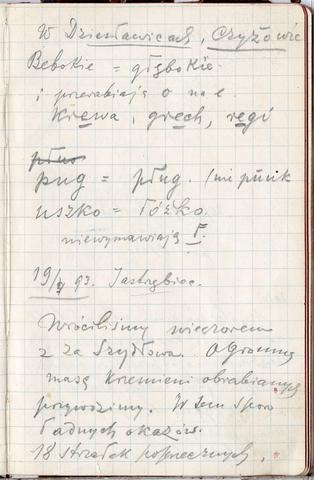 W Dziesławicach, Czyżowie
Bebokie = głębokie.
i przerabiają o na e.
Krewa, grech, regi
płuo
pug = pług. (ni puuk
uszko = łóżko.
niewymawiają ł.
19/X 93. Jastrzębiec.
Wróciliśmy wieczorem
z za Szydłowa. Ogromną
masę krzemieni obrabianych
przywozimy. W tem sporo
ładnych okazów.
18 strzałek poprzecznych,